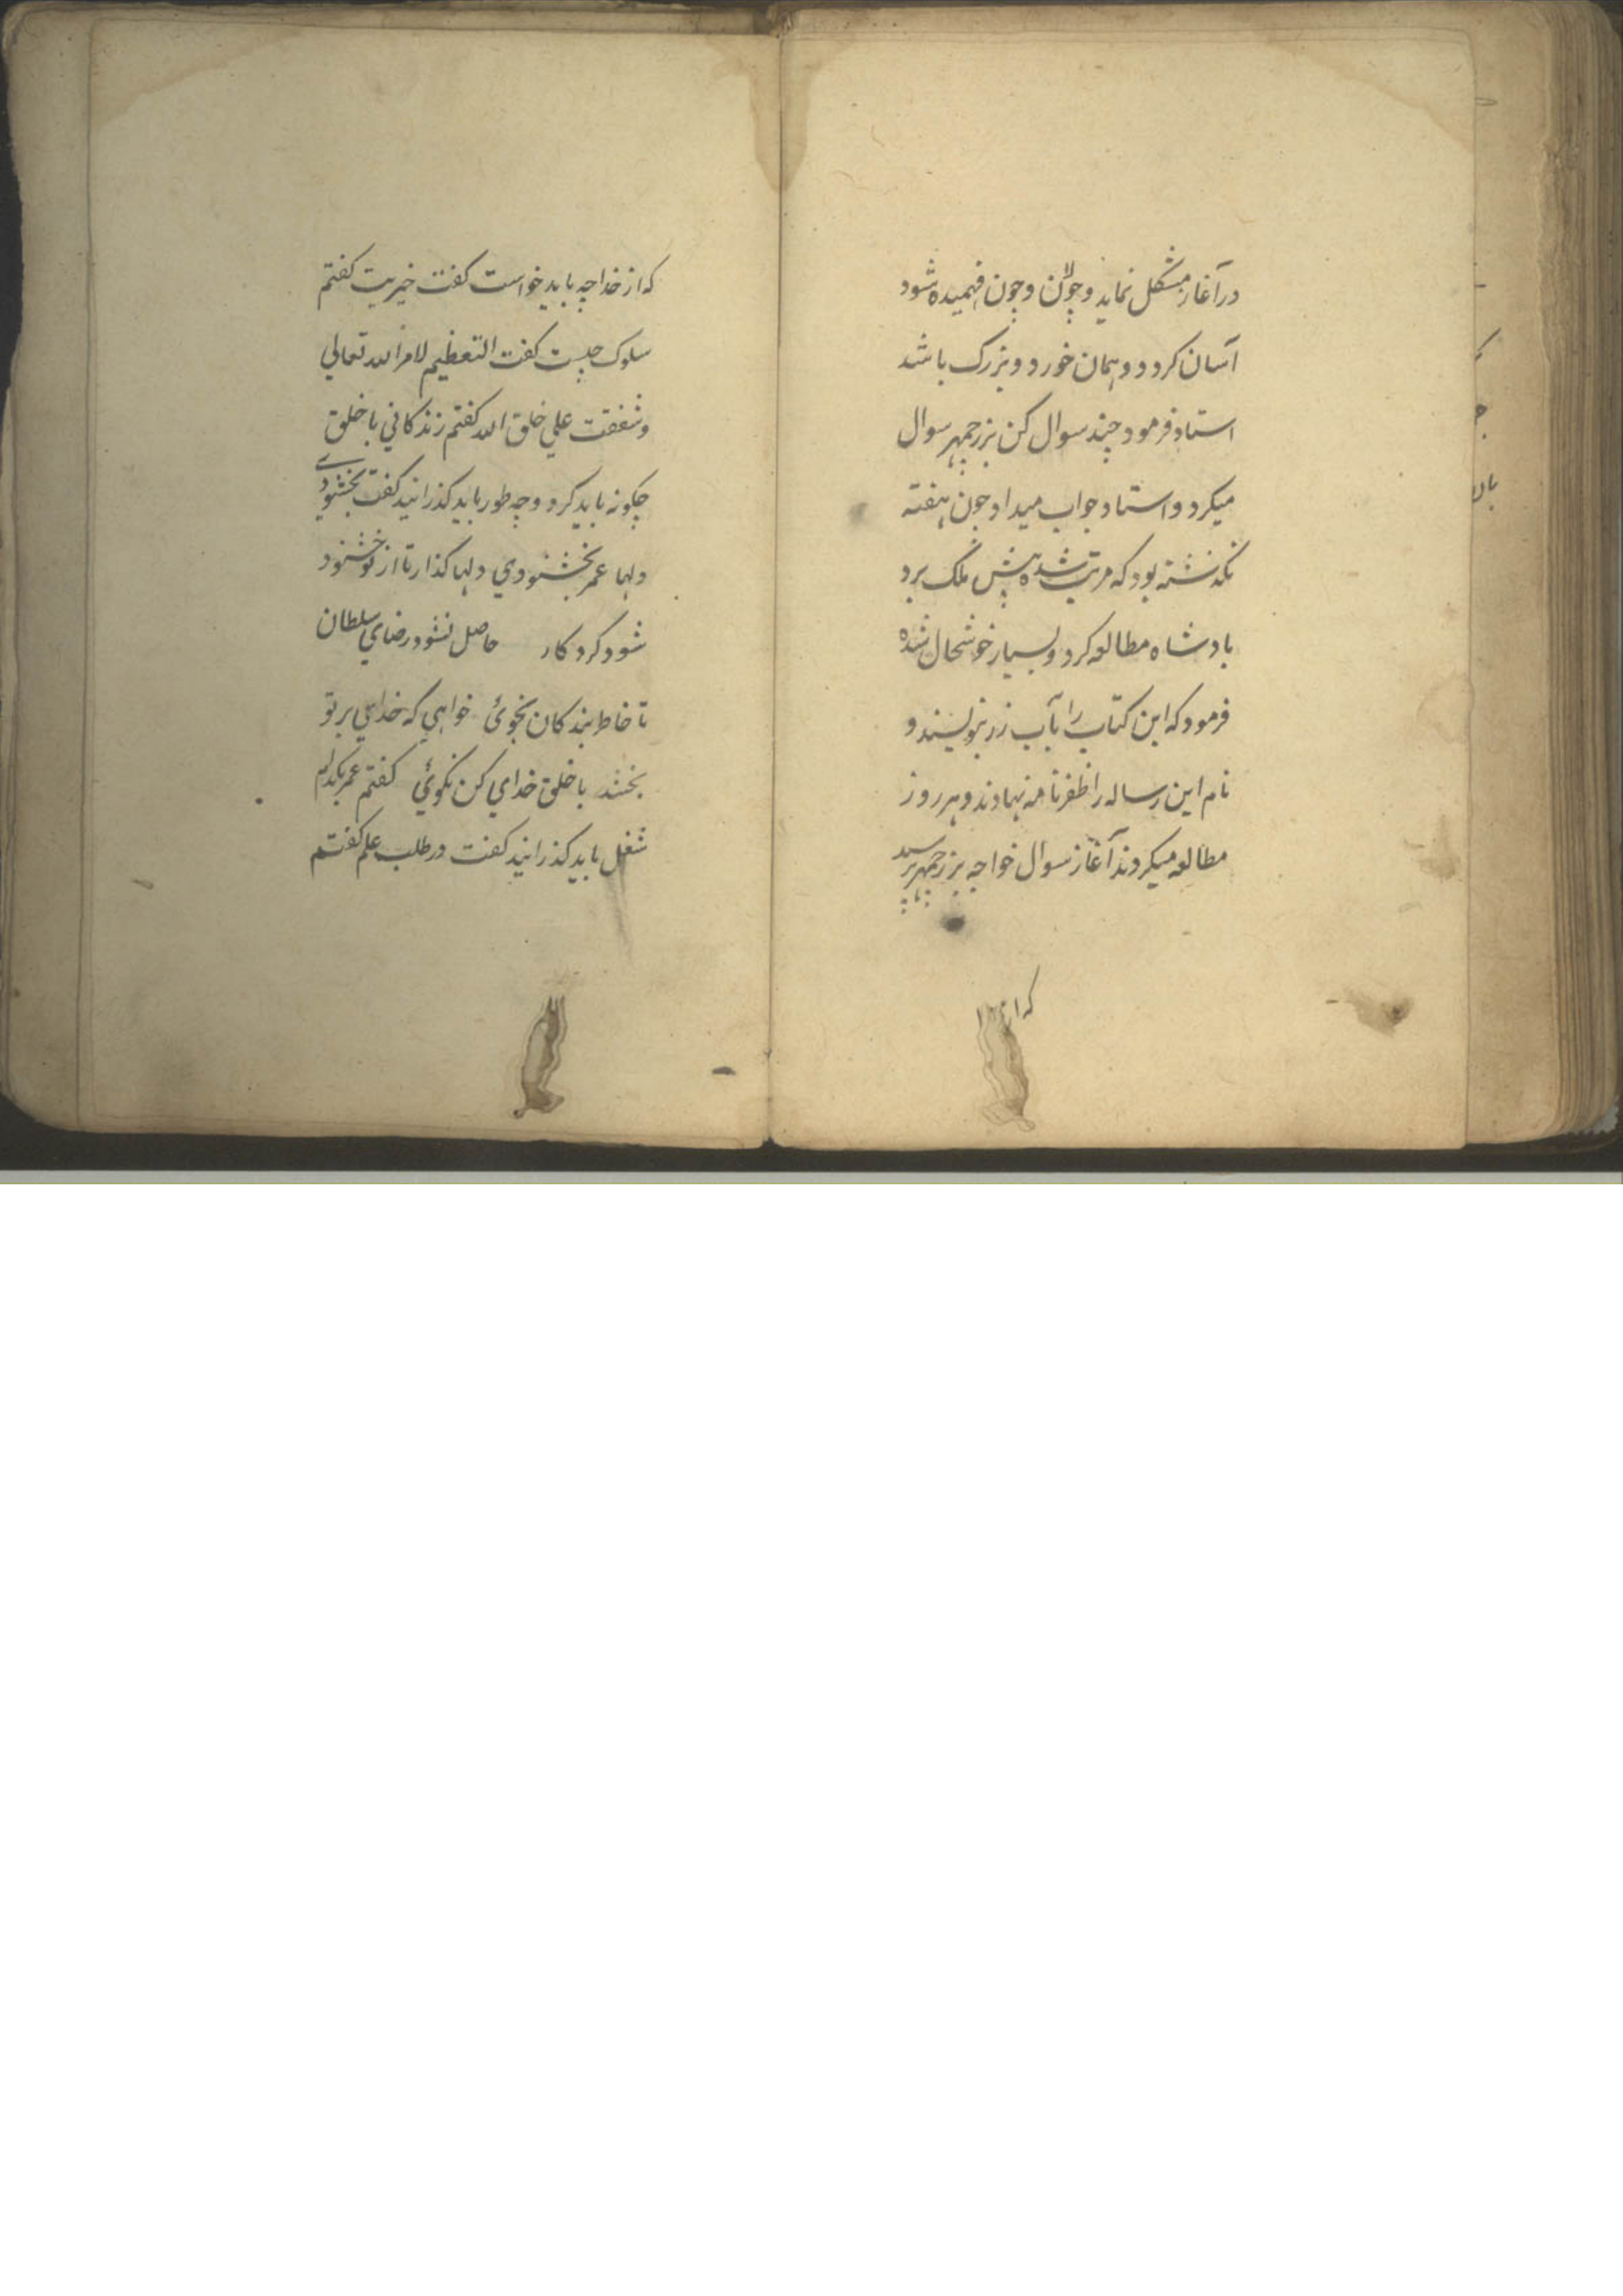 در آغاز مشکل نماید و چون و چون فهمیده شود
آسان کردد و همان خورد و بزرک باشد
استاد فرمود چند سوال کن بزرجمهر سوال
میکرد و استاد جواب میداد چون هفته
نکذشته بود که مرتب شده پیش ملک برد
بادشاه مطالعه کرد و بسیار خوشحال شده
فرمود که این کتاب را بآب زر بنویسند و
نام این رساله را ظفرنامه نهادند و هر روز
مطالعه میکردند آغاز سوال خواجه بزرجمهر پرسید
که از خدا
که از خدا چه باید خواست کفت خیریت کفتم
سلوک چیست کفت التعظیم لامر الله تعالی
و شفقت علی خلق الله کفتم زندکانی با خلق
چکونه باید کرد و چه طور باید کذرانید کفت بخشنودی
دلها عمر بخشنودی دلها کذار تا از تو خشنود
شود کردکار حاصل نشود رضای سلطان
تا خاطر بندکان نجوئ خواهی که خدای بر تو
بخشد با خلق خدای کن نکوئی کفتم عمر بکدام
شغل باید کذرانید کفت در طلب علم کفتم